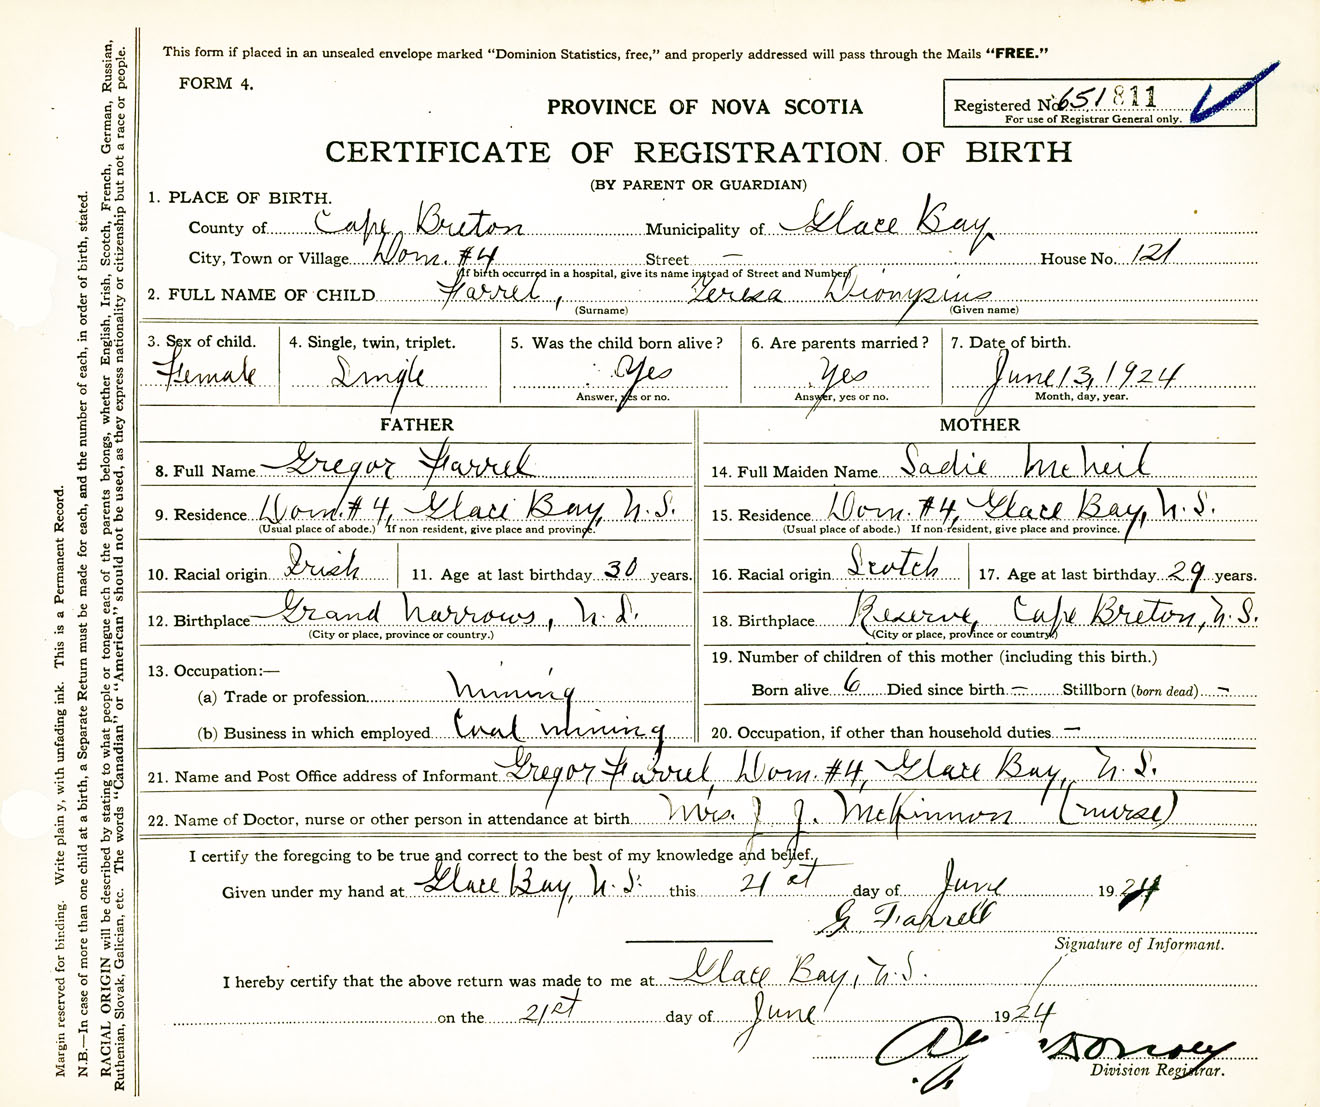 This form if placed in an unsealed envelope marked "Dominion Statistics, free," and properly addressed will pass through the Mails "FREE."
FORM 4.
Registered No. 651811
For use of Registrar General only.
PROVINCE OF NOVA SCOTIA
CERTIFICATE OF REGISTRATION OF BIRTH
(BY PARENT OR GUARDIAN)
1. PLACE OF BIRTH.
County of Cape Breton Municipality of Glace Bay
City, Town or Village Dom. #4 Street — House No. 121
(If birth occurred in a hospital, give its name instead of Street and Number)
2. FULL NAME OF CHILD Farrel, Teresa Dionysius
(Surname) (Given name)
3. Sex of child. 4. Single, twin, triplet. 5. Was the child born alive? 6. Are parents married? 7. Date of birth.
Female Single Yes Yes June 13, 1924
Answer, yes or no. Answer, yes or no. Month, day, year.
FATHER MOTHER
8. Full Name Gregor Farrel 14. Full Maiden Name Sadie McNeil
9. Residence Dom. #4, Glace Bay, N.S. 15. Residence Dom. #4, Glace Bay, N.S.
(Usual place of abode.) If non resident, give place and province. (Usual place of abode.) If non-resident, give place and province.
10. Racial origin Irish 11. Age at last birthday 30 years. 16. Racial origin Scotch 17. Age at last birthday 29 years.
12. Birthplace Grand Narrows, N.S. 18. Birthplace Reserve, Cape Breton, N.S.
(City or place, province or country.) (City or place, province or country)
13. Occupation:— 19. Number of children of this mother (including this birth.)
(a) Trade or profession Mining Born alive 6 Died since birth — Stillborn (born dead) —
(b) Business in which employed Coal mining 20. Occupation, if other than household duties —
21. Name and Post Office address of Informant Gregor Farrel, Dom. #4, Glace Bay, N.S.
22. Name of Doctor, nurse or other person in attendance at birth Mrs. J J. McKinnon (nurse)
I certify the foregoing to be true and correct to the best of my knowledge and belief.
Given under my hand at Glace Bay, N.S. this 21st day of June 1924
G Farrell
Signature of Informant.
I hereby certify that the above return was made to me at Glace Bay, N.S.
on the 21st day of June 1924
Division Registrar.
Margin reserved for binding. Write plainly, with unfading ink. This is a Permanent Record.
N.B.—In case of more than one child at a birth, a Separate Return must be made for each, and the number of each, in order of birth, stated.
RACIAL ORIGIN will be described by stating to what people or tongue each of the parents belongs, whether English, Irish, Scotch, French, German, Russian,
Ruthenian, Slovak, Galician, etc. The words "Canadian" or "American" should not be used, as they express nationality or citizenship but not a race or people.